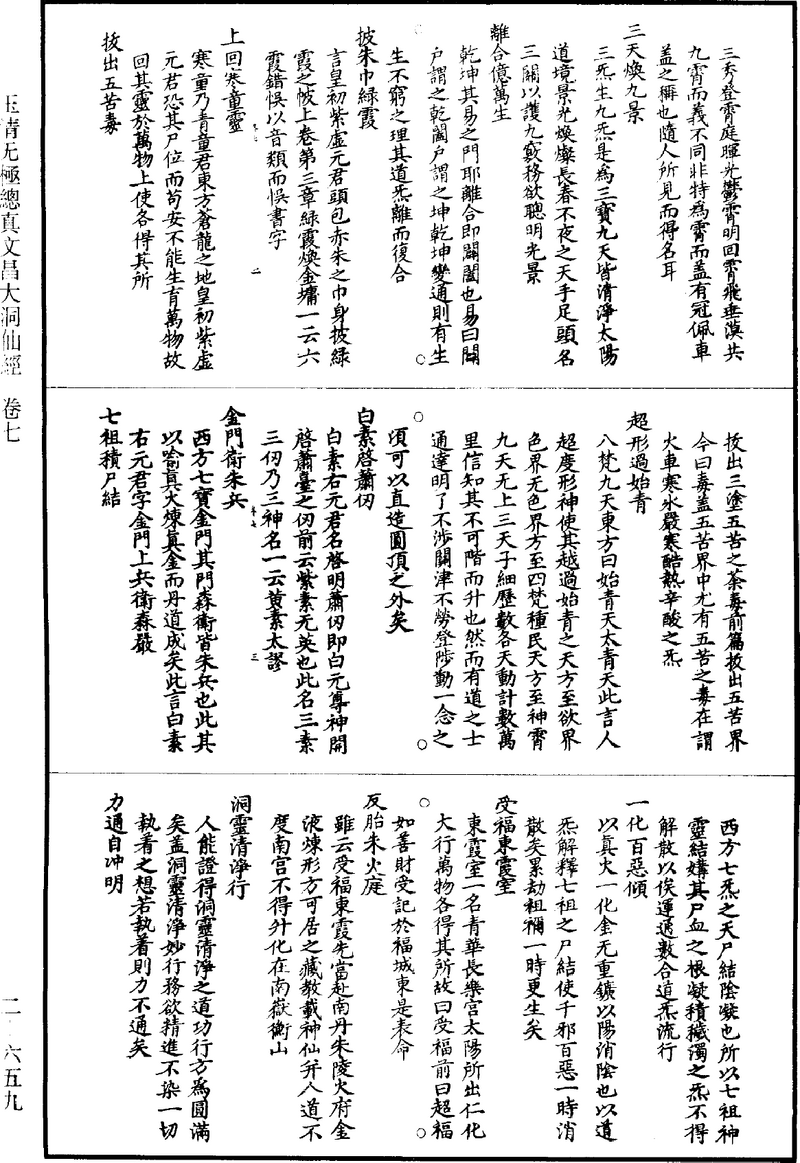 三秀登霄庭暉光鬱霄明回霄飛垂漠共
九霄而義不同非特為霄而蓋有冠佩車
蓋之稱也隨人所見而得名耳
三天煥九景
三炁生九炁是為三寶九天皆清淨太陽
道境景光煥燦長春不夜之天手足頭名
三關以護九竅務欲聰明光景
離合億萬生
乾坤其易之門耶離合即闢闔也易曰闔
戶謂之乾闔戶謂之坤乾坤變通則有生
生不窮之理其道炁離而復合
披朱巾綠霞
言皇初紫虛元君頭包赤朱之巾身披綠
霞之帔上卷第三章綠霞煥金墉一云六
霞錯悞以音類而悞書字
上回寒童靈
寒童乃青童君東方蒼龍之地皇初紫虛
元君恐其尸位而苟安不能生育萬物故
回其靈於萬物上使各得其所
拔出五苦毒
拔出三塗五苦之荼毒前篇拔出五苦界
今曰毒蓋五苦界中尤有五苦之毒在謂
火車寒氷嚴寒酷熱辛酸之炁
超形過始青
八梵九天東方曰始青天太青天此言人
超度形神使其越過始青之天方至欲界
色界无色界方至四梵種民天方至神霄
九天无上三天子細歷數各天動計數萬
里信知其不可階而升也然而有道之士
通達明了不涉關津不勞登陟動一念之
頃可以直造圓頂之外矣
白素啓蕭仞
白素右元君名啓明蕭仞即白元尊神開
啓蕭臺之仞前云紫素无英也此名三素
三仞乃三神名一云黃素太謬
金門衛朱兵
西方七寶金門其門森衛皆朱兵也此其
以喻真火煉真金而丹道成矣此言白素
右元君字金門上兵衛森嚴
七祖積尸結
西方七炁之天尸結陰凝也所以七祖神
靈結媾其尸血之根凝積穢濁之炁不得
解散以俟運通數合道炁流行
一化百惡傾
以真火一化金无重鑛以陽消陰也以道
炁解釋七祖之尸結使千邪百惡一時消
散矣累劫祖禰一時更生矣
受福東霞室
東霞室一名青華長樂宮太陽所出仁化
大行萬物各得其所故曰受福前曰超福
如善財受記於福城東是表命
反胎朱火庭
雖云受福東霞先當赴南丹朱陵火府金
液煉形方可居之藏教載神仙并人道不
度南宮不得升化在南嶽衡山
洞靈清淨行
人能證得洞靈清淨之道功行方為圓滿
矣蓋洞靈清淨妙行務欲精進不染一切
執着之想若執着則力不通矣
力通自冲明
玉清无極總真文昌大洞仙經 卷七
二-六五九